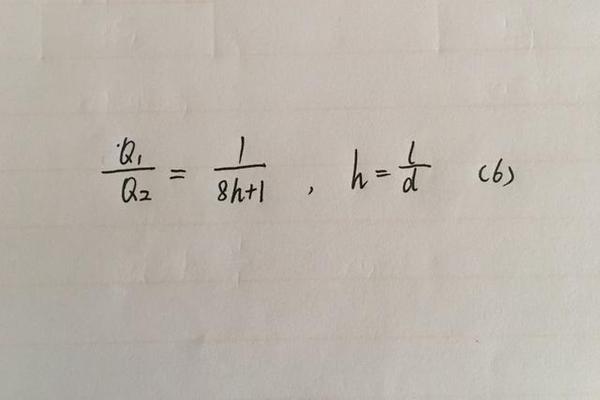 Q₁/Q₂ = 1/(8h+1) , h = l/d (6)